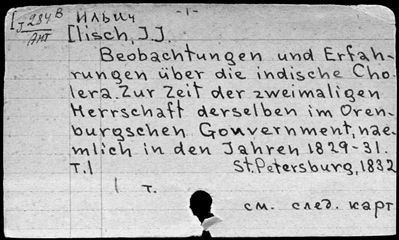 [J 284 B Ильич -1-
Ант [lisch, J].
Beobachtungen und Erfah-
rungen über die indische Cho-
lera. Zur Zeit der zweimaligen
Herrschaft derselben im Oren-
burgschen Gouvernment, nae-
mlich in den Jahren 1829-31.
т. 1 St. Petersburg, 1832
1 т.
см. след. карт